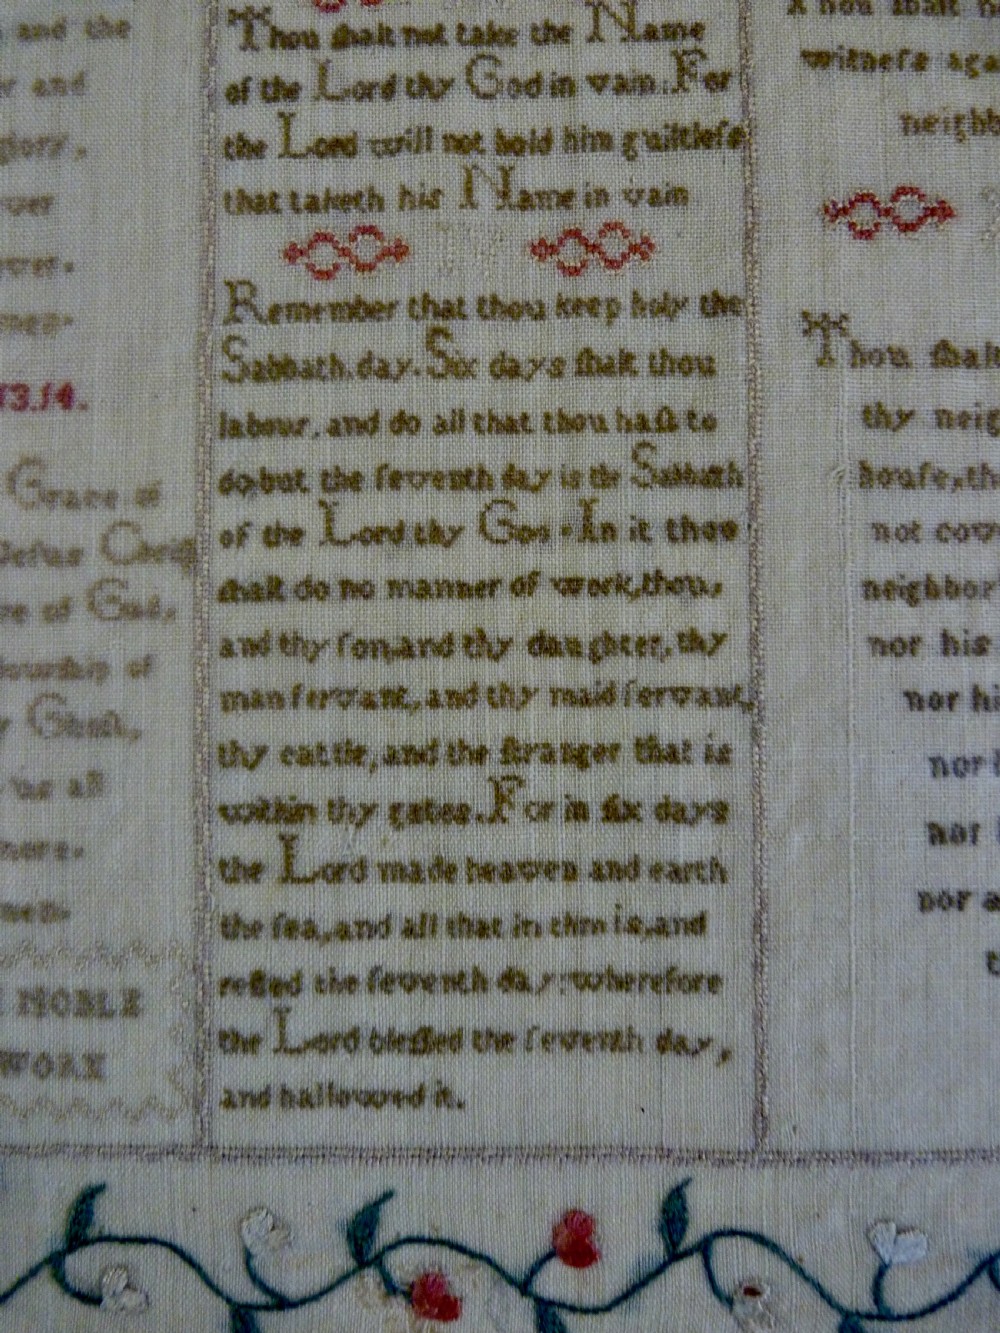 and the
and
glory,
13.14.
Grace of
Jesus Christ
of God,
of
Ghost,
us all
NOBLE
WORK
Thou ſhalt not take the Name
of the Lord thy God in vain. For
the Lord will not hold him guiltleſs
that taketh his Name in vain
Remember that thou keep holy the
Sabbath.day.Six days ſhalt thou
labour, and do all that thou haſt to
do, but the ſeventh day is the Sabbath
of the Lord thy God. In it thou
ſhalt do no manner of work, thou,
and thy ſon, and thy daughter, thy
man ſervant, and thy maid ſervant,
thy cattle, and the ſtranger that is
within thy gates. For in ſix days
the Lord made heaven and earth
the ſea, and all that in them is, and
reſted the ſeventh day: wherefore
the Lord bleſſed the ſeventh day,
and hallowed it.
Thou ſhalt
witneſs aga
neighb
Thou ſhalt
thy neig
houſe, th
not cov
neighbor
nor his
nor hi
nor
nor
nor a